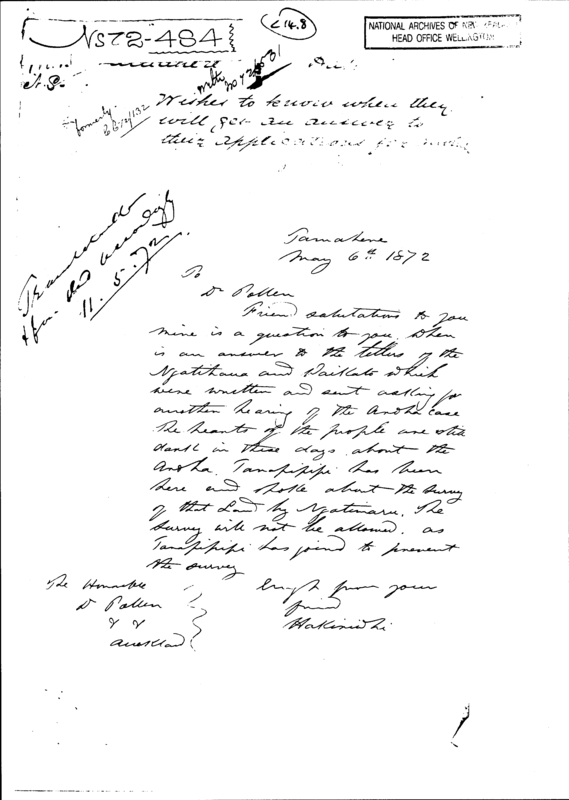 C14.8
NS72-484
NATIONAL ARCHIVES OF NEW
HEAD OFFICE WELLINGTON
Wishes to know when they
formerly
will get an answer to
their applications for
11. 5. 72
Tamahere
May 6th 1872
To
Dr Pollen
Friend salutations to you
mine is a question to you. When
is an answer to the letters of the
Ngatihaua and Waikato which
were written and sent asking for
another hearing of the Aroha case
The hearts of the people are still
dark in these days about the
Aroha. Tanapipipi has been
here and spoke about the survey
of that Land by Ngatimaru. The
survey will not be allowed. as
Tanapipipi has joined to prevent
the survey
The Honorable
Dr Pollen
& &
Auckland
Enough from your
friend